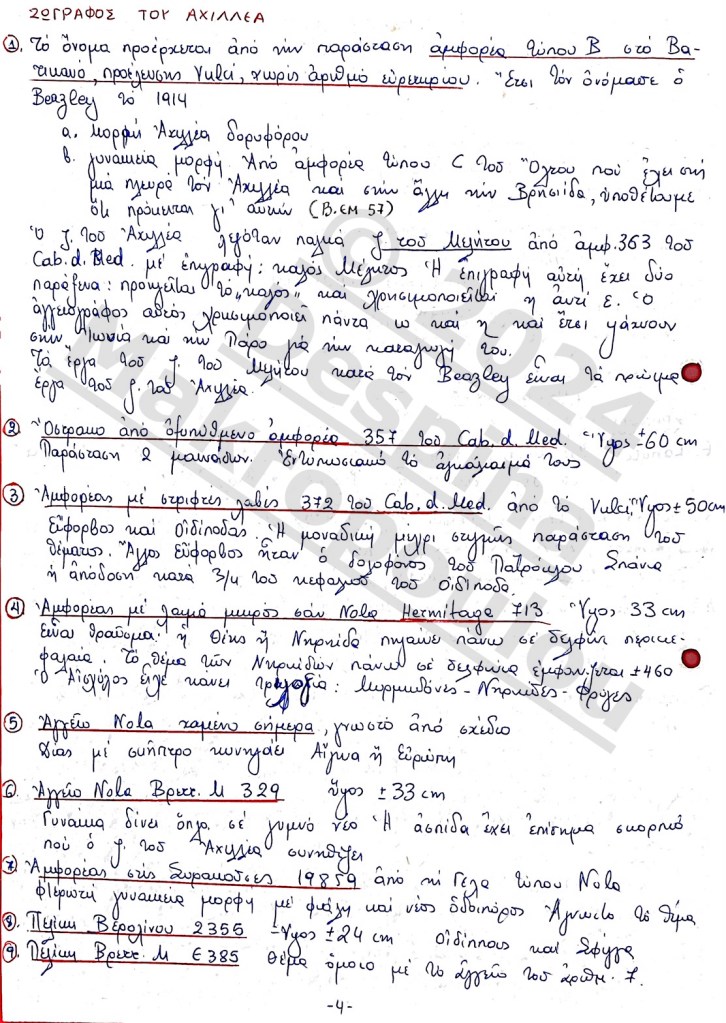 ΖΩΓΡΑΦΟΣ ΤΟΥ ΑΧΙΛΛΕΑ
1. Τὸ ὄνομα προέρχεται ἀπὸ τὴν παράσταση ἀμφορέα τύπου Β στὸ Βα-
τικανό, προέλευσης Vulci, χωρὶς ἀριθμὸ εὑρετηρίου. Ἔτσι τὸν ὀνόμασε ὁ
Beazley τὸ 1914
α. Μορφὴ Ἀχιλλέα δορυφόρου
β. γυναικεία μορφὴ Ἀπὸ ἀμφορέα τύπου C τοῦ Ὄλτου ποὺ ἔχει στὴ
μιὰ πλευρὰ τὸν Ἀχιλλέα καὶ στὴν ἄλλη τὴν Βρησιίδα, ὑποθέτουμε
ὅτι πρόκειται γι' αὐτήν (Β.ΕΜ 57)
Ὁ ζ. τοῦ Ἀχιλλέα λεγόταν παλιὰ ζ. τοῦ Μελήτου ἀπὸ ἀμφ. 363 τοῦ
Cab. d. Med. μὲ ἐπιγραφή: καλὸς Μέλητος Ἡ ἐπιγραφὴ αὐτὴ ἔχει δύο
παράξενα: προηγεῖται τὸ „καλος" καὶ χρησιμοποιεῖται η ἀντὶ ε. Ὁ
ἀγγειογράφος αὐτὸς χρησιμοποιεῖ πάντα ω καὶ η καὶ ἔτσι ψάχνουν
στὴν Ἰωνία καὶ τὴν Πάρο γιὰ τὴν καταγωγή του.
Τὰ ἔργα τοῦ ζ. τοῦ Μελήτου κατὰ τὸν Beazley εἶναι τὰ πρώιμα
ἔργα τοῦ ζ. τοῦ Ἀχιλλέα.
2. Ὄστρακο ἀπὸ ὀξυπύθμενο ἀμφορέα 357 τοῦ Cab. d. Med. Ὕψος ±60 cm
Παράσταση 2 μαινάδων. Ἐντυπωσιακὸ τὸ ἀγκάλιασμά τους
3. Ἀμφορέας μὲ στριφτὲς λαβὲς 372 τοῦ Cab. d. Med. ἀπὸ τὸ Vulci, Ὕψος ±50cm
Εὔφορβος καὶ Οἰδίποδας. Ἡ μοναδικὴ μέχρι στιγμῆς παράσταση τοῦ
θέματος. Ἄλλος Εὔφορβος ἦταν ὁ δολοφόνος τοῦ Πατρόκλου Σπάνια
ἡ ἀπόδοση κατὰ 3/4 τοῦ κεφαλιοῦ τοῦ Οἰδίποδα.
4. Ἀμφορέας μὲ λαιμὸ μικρὸς σὰν Nola Hermitage 713 Ὕψος 33 cm
Εἶναι θραῦσμα. ἡ Θέτις ἢ Νηρηίδα πηγαίνει πάνω σὲ δελφίνι περικε-
φαλαία. Τὸ θέμα τῶν Νηρηίδων πάνω σὲ δελφίνια ἐμφανίζεται ±460
Ὁ Αἰσχύλος εἶχε κάνει τριλογία: Μυρμιδόνες - Νηρηίδες - Φρύγες
5. Ἀγγεῖο Nola χαμένο σήμερα, γνωστὸ ἀπὸ σχέδιο
Δίας μὲ σκῆπτρο κυνηγάει Αἴγινα ἢ Εὐρώπη
6. Ἀγγεῖο Nola Βρετ. Μ 329 ὕψος ±33 cm
Γυναίκα δίνει ὅπλα σὲ γυμνὸ νέο Ἡ ἀσπίδα ἔχει ἐπίσημα σκορπιὸ
ποὺ ὁ ζ. τοῦ Ἀχιλλέα συνηθίζει
7. Ἀμφορέας στὶς Συρακοῦσες 19859 ἀπὸ τὴ Γέλα τύπου Nola
Φτερωτὴ γυναικεία μορφὴ μὲ φιάλη καὶ νέος ὁδοιπόρος Ἄγνωστο τὸ θέμα
8. Πελίκη Βερολίνου 2355 - Ὕψος ±24 cm Οἰδίποus καὶ Σφίγγα
9. Πελίκη Βρετ. Μ Ε385 Θέμα ὅμοιο μὲ τὸ ἀγγεῖο τοῦ ἀριθμ. 7.
-4-
© 2024
Despina
Mavropoulou